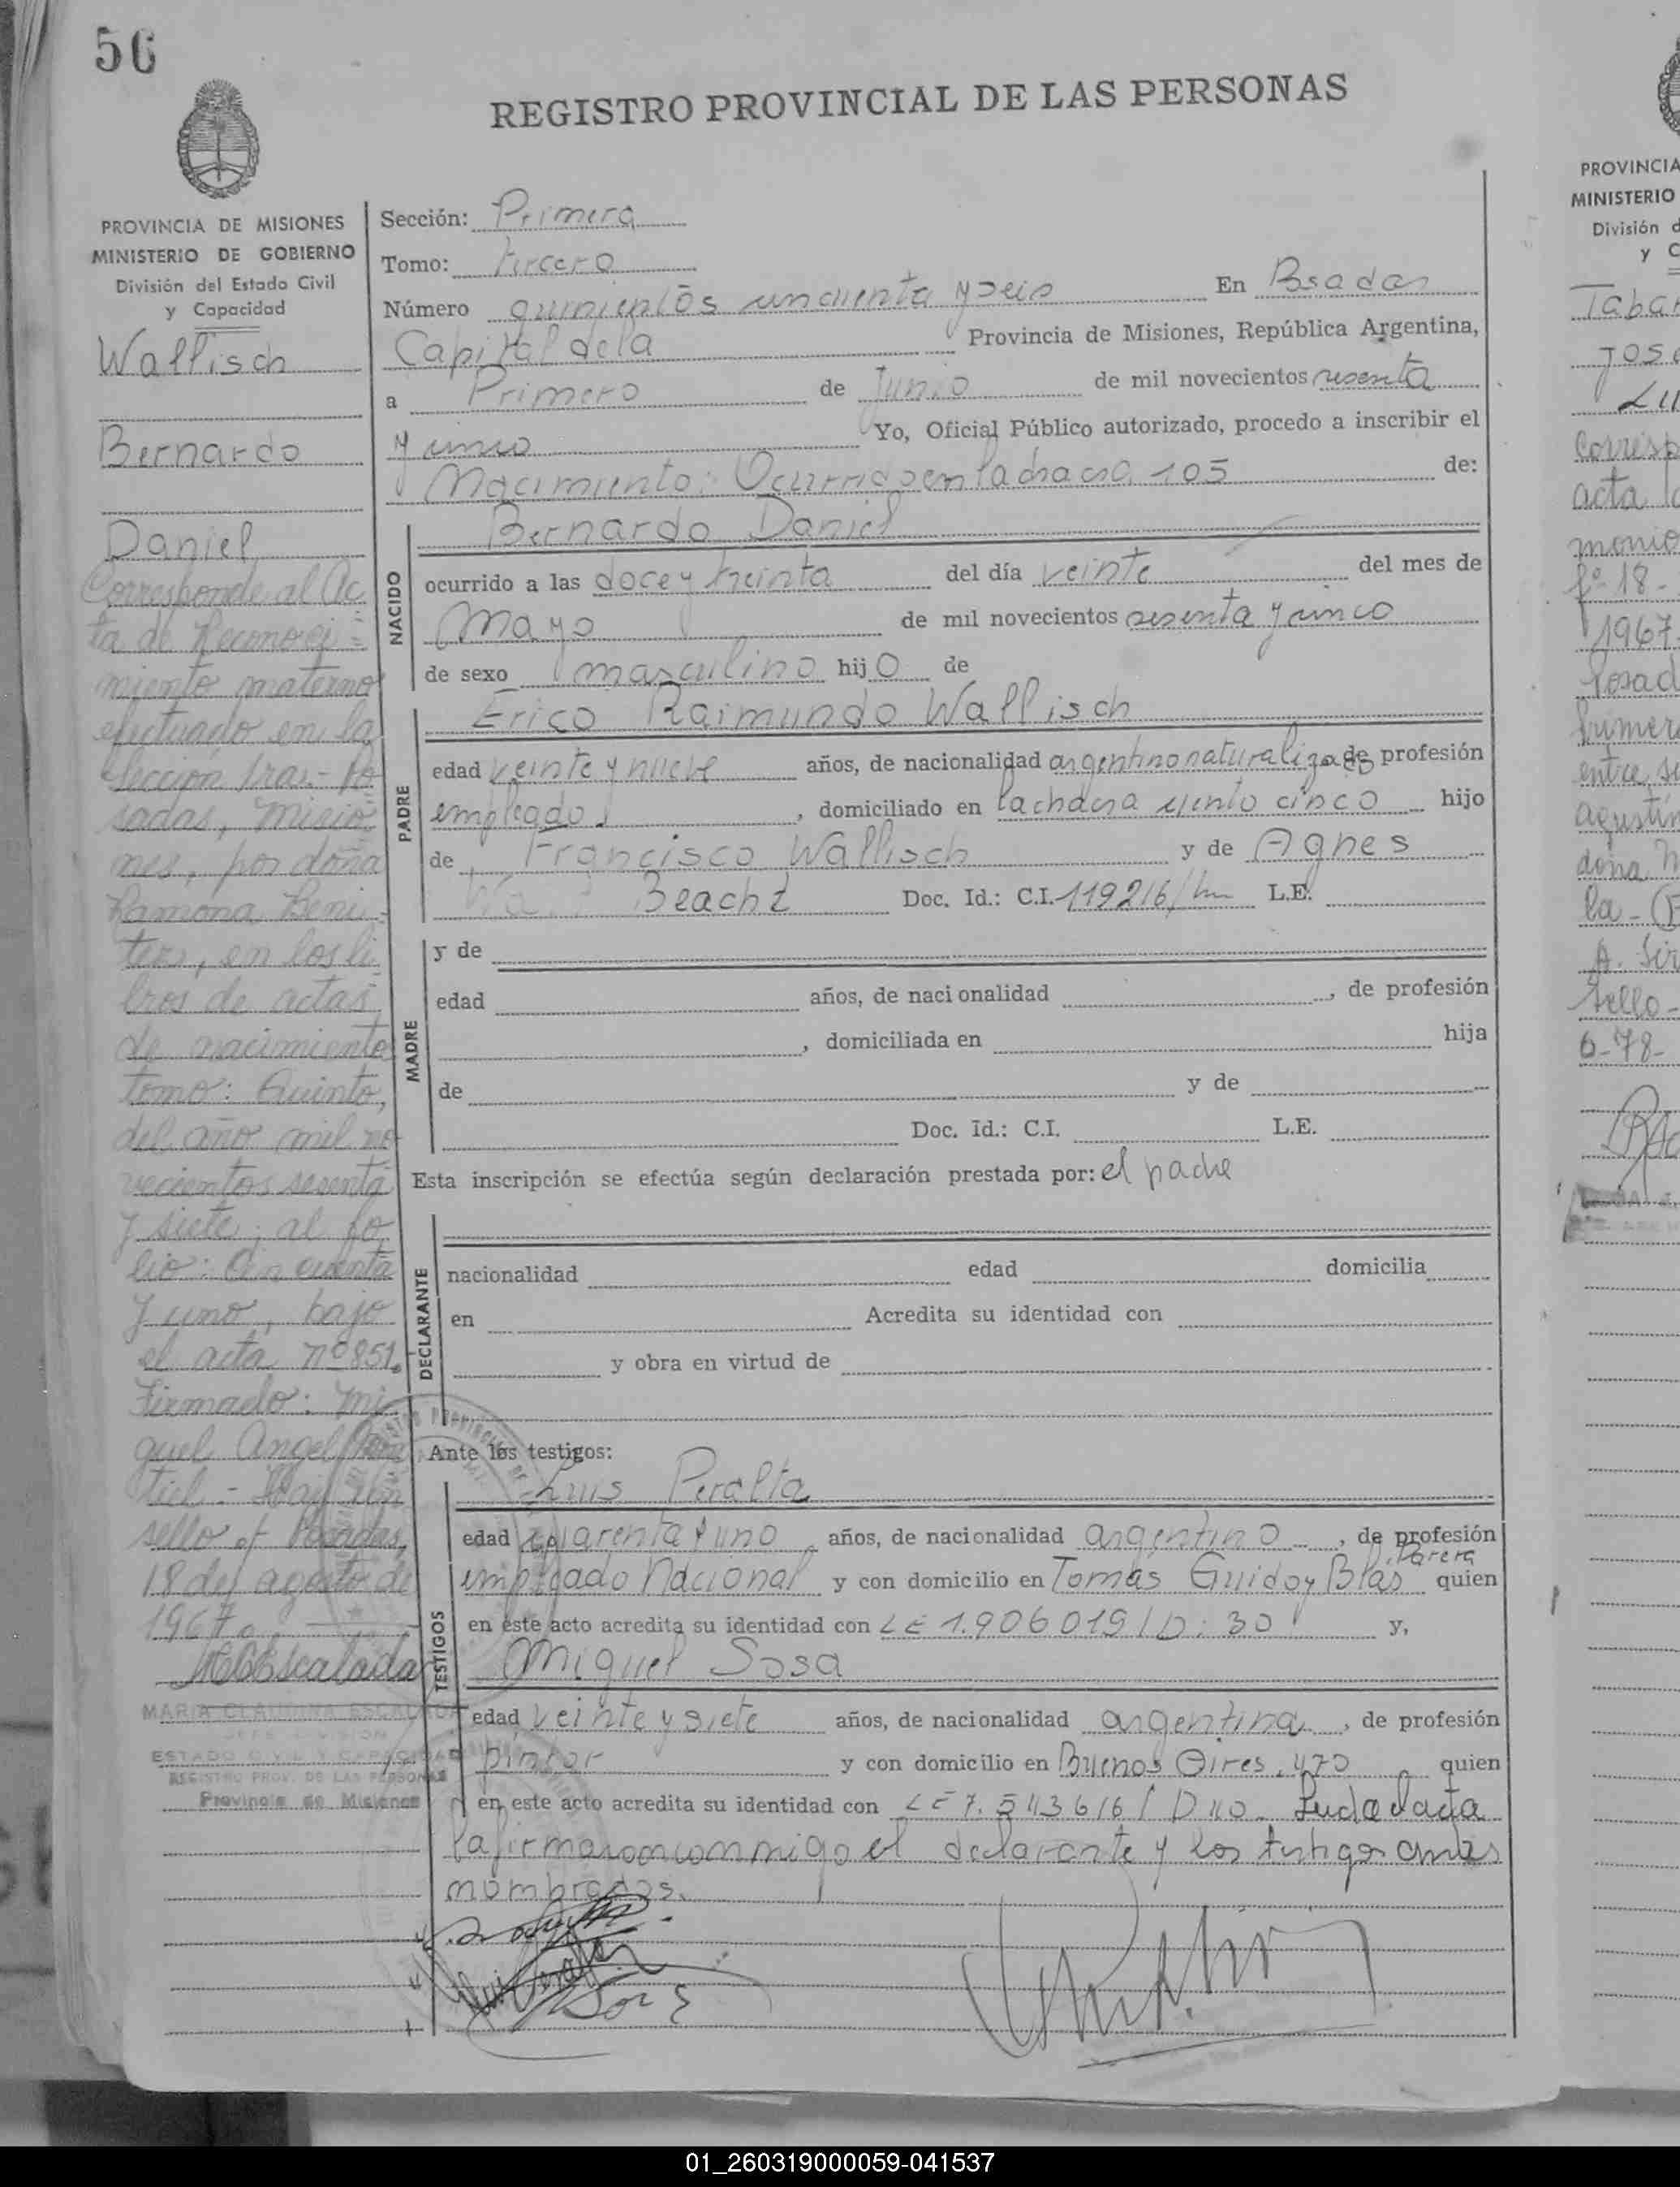 56
REGISTRO PROVINCIAL DE LAS PERSONAS
PROVINCIA DE MISIONES
MINISTERIO DE GOBIERNO
División del Estado Civil
y Capacidad
Wallisch
Bernardo
Daniel
Corresponde al Ac
ta de Reconoci=
miento materno
efectuado en la
Sección 1ras.- Po
sadas, Misio
nes, por doña
Ramona Beni-
tez, en los li
bros de actas
de nacimiento
tomo: Quinto,
del año mil no
vecientos sesenta
y siete, al fo
lio: Cincuenta
y uno, bajo
el acta nº 851.
Firmado: Mi
guel Angel
tiel.- Hay un
sello of Posadas,
18 de agosto de
1967.
MCEscalada
MARIA CLAUDINA ESCALADA
JEFE DIVISION
ESTADO CIVIL Y CAPACIDAD
REGISTRO PROV. DE LAS PERSONAS
Provincia de Misiones
Sección: Primera
Tomo: tercero
Número quinientos cincuenta y seis En Posadas
Capital de la Provincia de Misiones, República Argentina,
a Primero de Junio de mil novecientos sesenta
y cinco Yo, Oficial Público autorizado, procedo a inscribir el
Nacimiento: Ocurrido en la chacra 105 de:
NACIDO
Bernardo Daniel
ocurrido a las doce y treinta del día veinte del mes de
Mayo de mil novecientos sesenta y cinco
de sexo masculino hijo de
PADRE
Erico Raimundo Wallisch
edad veinte y nueve años, de nacionalidad argentino naturalizado de profesión
empleado, domiciliado en la chacra ciento cinco hijo
de Francisco Wallisch y de Agnes
Beacht Doc. Id.: C.I. 119216/ L.E.
MADRE
y de
edad años, de nacionalidad , de profesión
, domiciliada en hija
de y de
Doc. Id.: C.I. L.E.
Esta inscripción se efectúa según declaración prestada por: el padre
DECLARANTE
nacionalidad edad domicilia
en Acredita su identidad con
y obra en virtud de
Ante los testigos:
TESTIGOS
Luis Peralta
edad cuarenta y uno años, de nacionalidad argentino, de profesión
empleado Nacional y con domicilio en Tomás Guido y Blas Parera quien
en este acto acredita su identidad con LE 1.906019/D: 30 y,
Miguel Sosa
edad veinte y siete años, de nacionalidad argentina, de profesión
pintor y con domicilio en Buenos Aires 470 quien
en este acto acredita su identidad con LE 7.543616/D 40. Leida el acta
la firmaron conmigo el declarante y los testigos antes
nombrados.
PROVINCIA
MINISTERIO
División d
y C
Tabar
José
Lu
Corresp
acta
monio
fº 18-
1967
Posad
Primera
entre
agustin
doña
la
A.
Sello-
6-78-
01_260319000059-041537